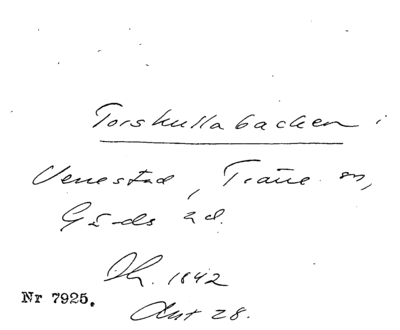 Torskullabacken i
Venestad, Träne sn,
Gärds hd.
Dr. 1842
Nr 7925.
Ant 28.